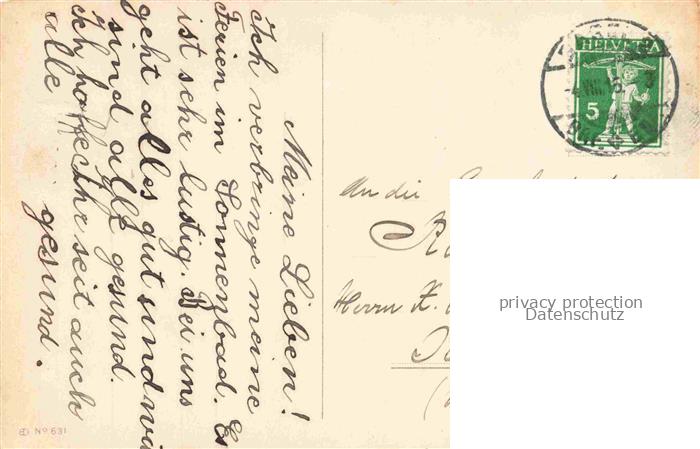 Meine Lieben!
Ich verbringe meine
Ferien im Sonnenbad. Es
ist sehr lustig. Bei uns
geht alles gut und wir
sind alle gesund.
Ich hoffe Ihr seit auch
alle
gesund.
HELVETIA
5
An die
Herrn K.
privacy protection
Datenschutz
No 631